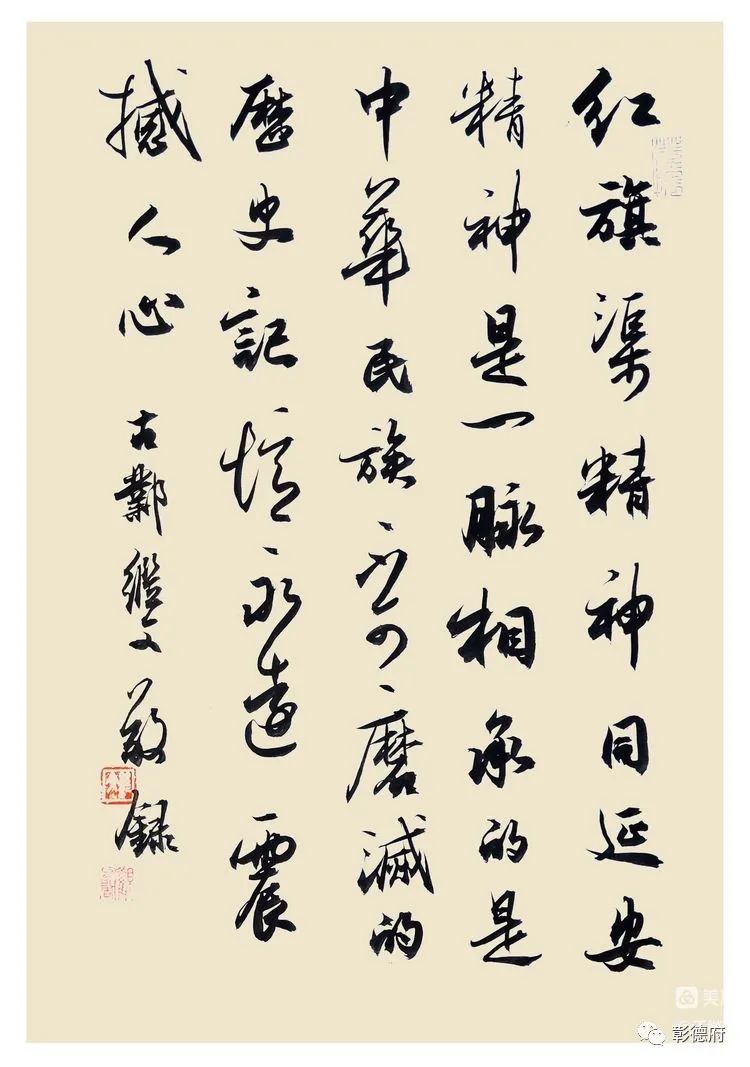 红旗渠精神同延安
精神是一脉相承的是
中華民族不可磨滅的
歷史記憶永遠震
撼人心
古鄴繼文敬録
美
彰德府